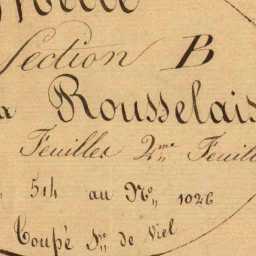 Section B
Rousselais
Feuilles 2me Feuil
514 au No 1026
Coupé Sr de Viel